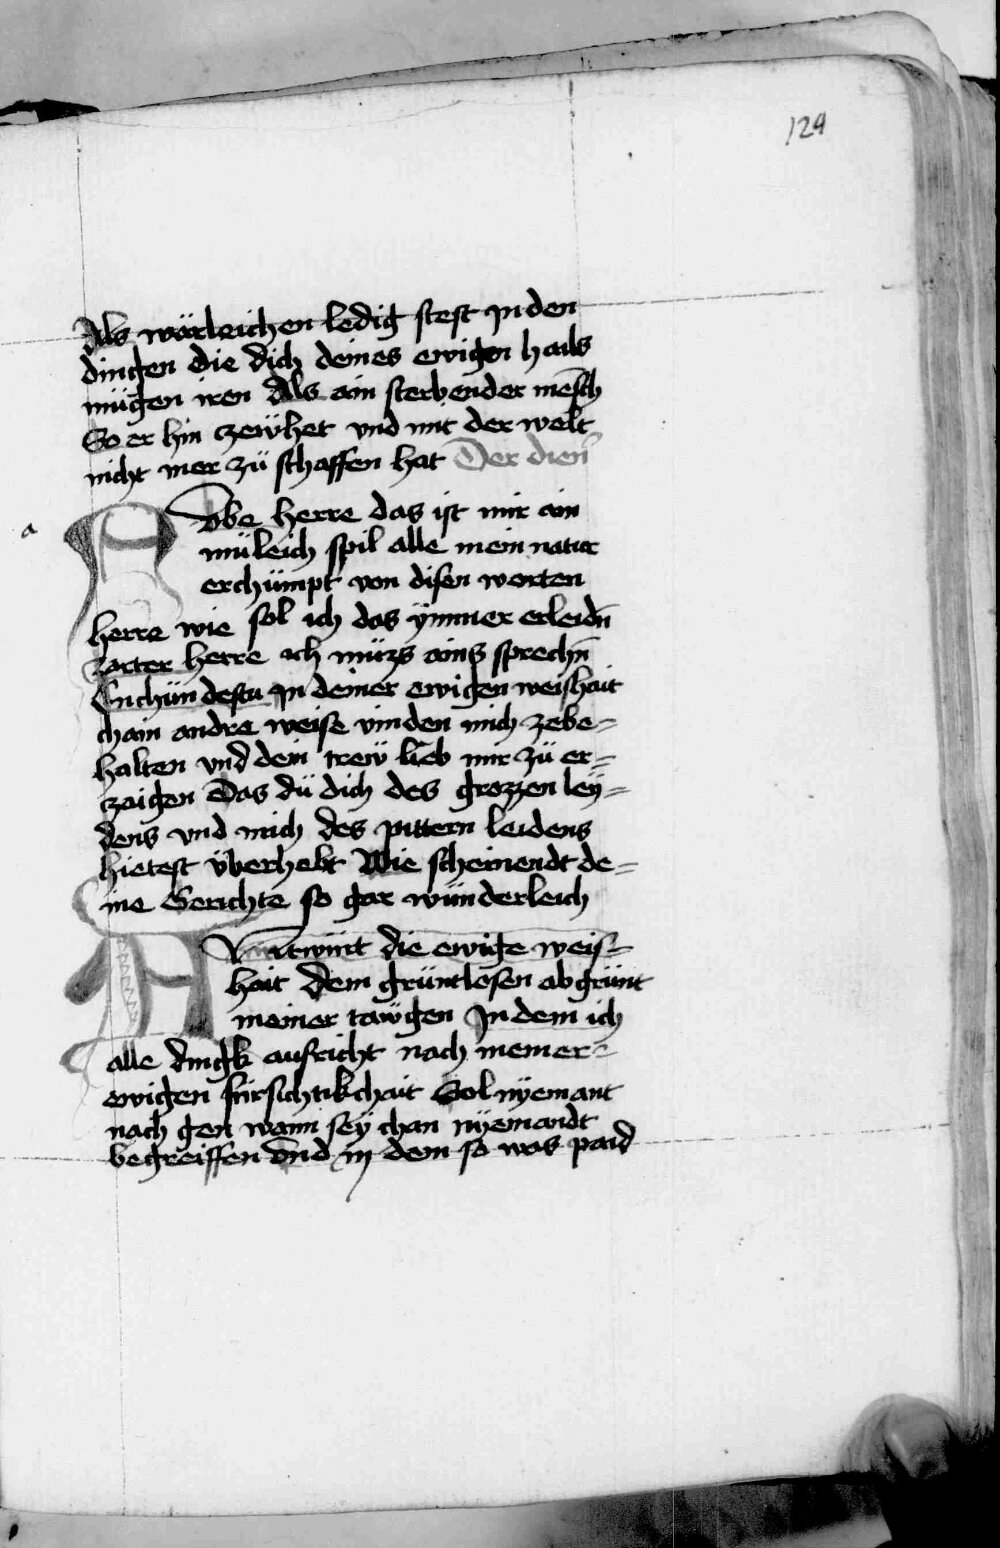 129
Als wärleichen ledig stest In den
dingen die dich deines ewigen hails
mügen iren Als ain sterbender mēsch
So er hin czewhet vnd mit der welt
nicht mer zü schaffen hat Der dien̄
a
Awe herre das ist mir ain
müleich spil alle mein natur
erchümpt von disen worten
herre wie sol ich das ÿmmer erleidn̄
zarter herre ich müzs ains sprechn̄
Enchündestu In deiner ewigen weishait
chain andre weise vinden mich zebe=
halten vnd dein trew lieb mir zü er=
czaigen Das dü dich des grozzen leÿ=
dens vnd mich des pittern leidens
hietest überhebt Wie scheinendt de=
ine Gerichte so gar wünderleich
Antwürt die ewige weis=
hait Dem grüntlosen abgrünt
meiner tawgen In dem ich
alle dingk aufricht nach meiner=
ewigen fürsichtikchait Sol nÿemant
nach gen wann seÿ chan nÿemandt
begreiffen Vnd in dem so was paid